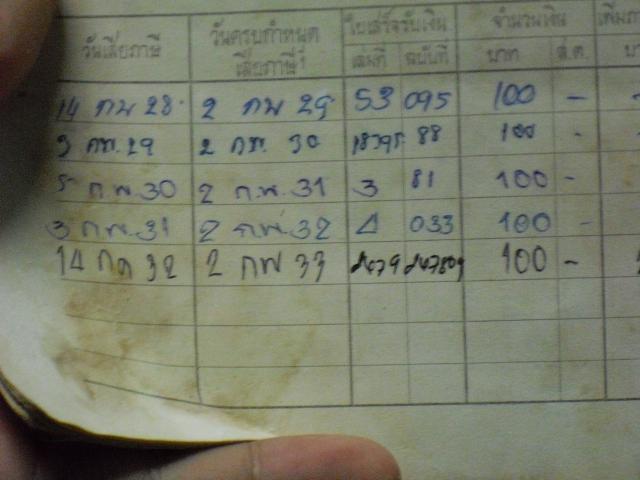 วันเสียภาษี วันครบกำหนด ใบเสร็จรับเงิน จำนวนเงิน
เสียภาษี เล่มที่ ฉบับที่ บาท ส.ต.
14 กพ 28 2 กพ 29 53 095 100 -
3 กพ. 29 2 กพ. 30 88 100 -
5 ก.พ. 30 2 ก.พ. 31 3 81 100 -
3 ก.พ. 31 2 ก.พ. 32 033 100 -
14 32 2 กพ 33 100 -